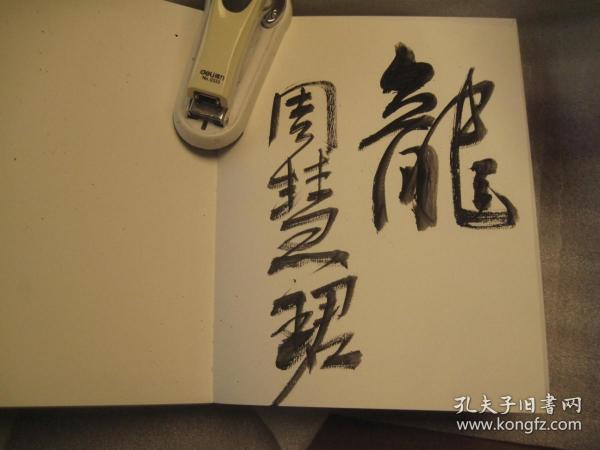 龍
周慧珺
deli 得力
孔夫子旧書网
www.kongfz.com